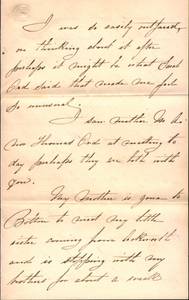 I was so easily
on thinking about it after
perhaps it might be what Coral
Ord said that made me feel
so unusual.
I saw mother
Thomas Ord at meeting to
day perhaps they are both with
you.
My Mother is gone to
Bolton to meet my little
sister coming from Ackworth
and is stopping with my
brothers for about a week